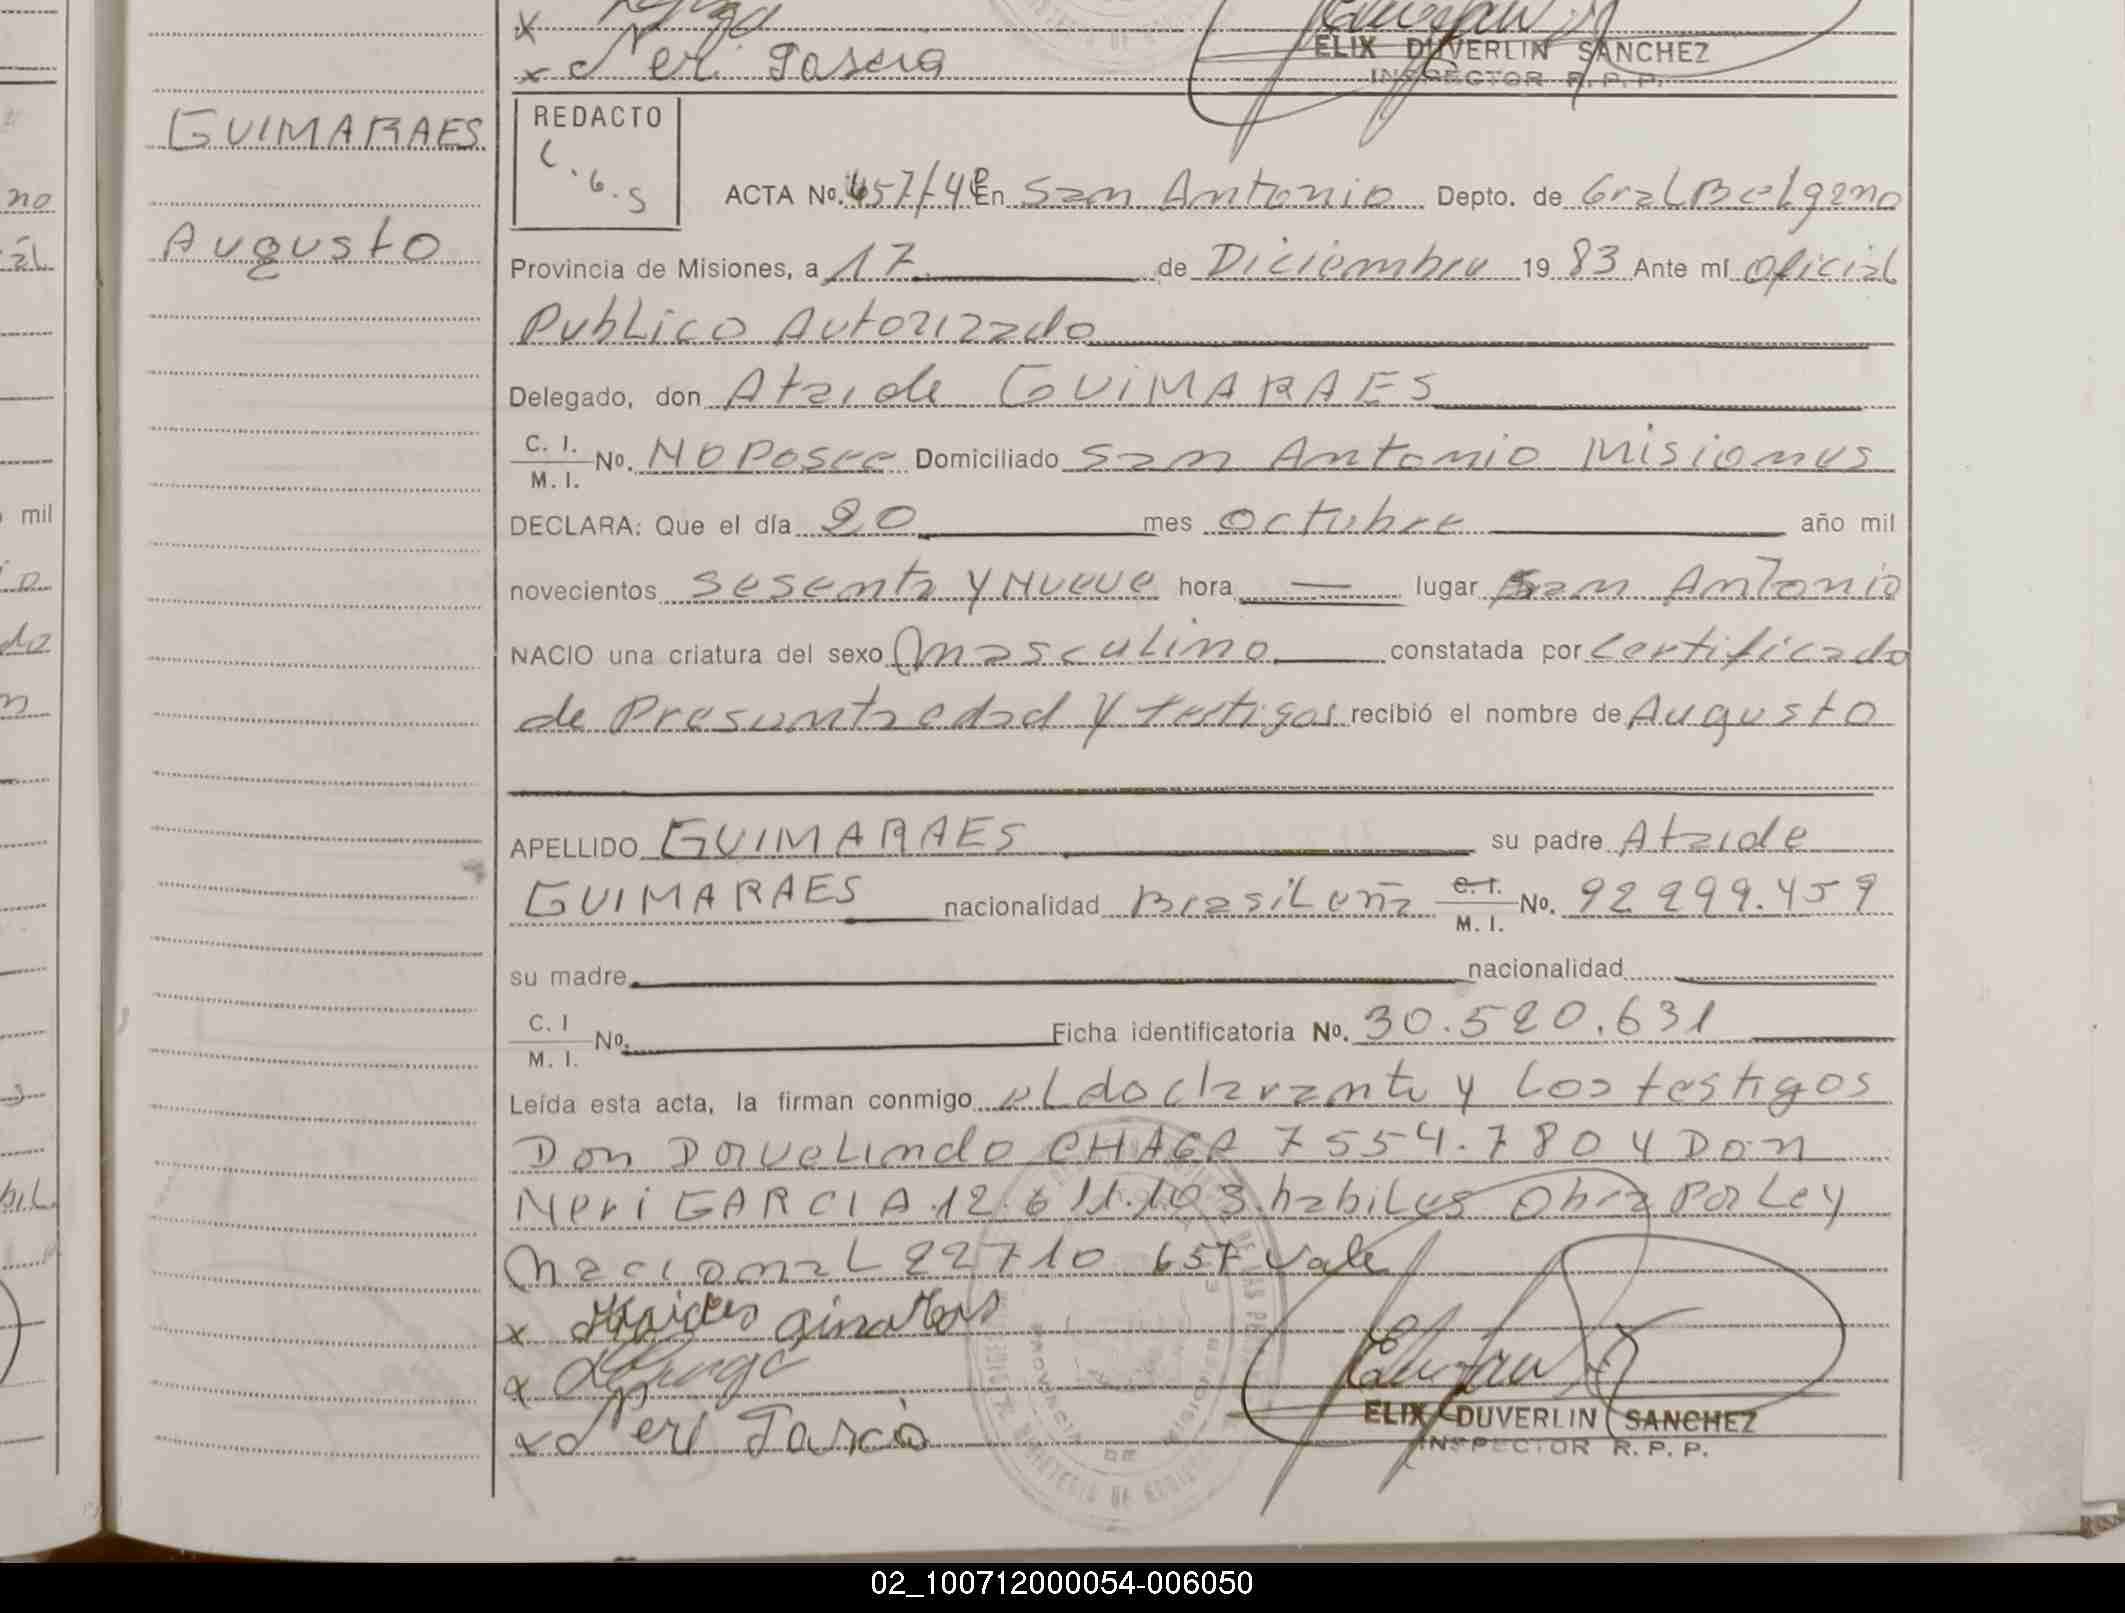 x
x Neri Garcia
ELIX DUVERLIN SANCHEZ
INSPECTOR R. P. P.
GUIMARAES
Augusto
REDACTO
L.G.S
ACTA No. 657/4º En San Antonio Depto. de Gral Belgrano
Provincia de Misiones, a 17 de Diciembre 19 83 Ante mí Oficial
Publico Autorizado
Delegado, don Ataide GUIMARAES
C. I.
M. I. No. NO Posee Domiciliado San Antonio Misiones
DECLARA: Que el día 20 mes octubre año mil
novecientos sesenta y Nueve hora — lugar San Antonio
NACIO una criatura del sexo Masculino constatada por Certificado
de Presunta edad y testigos recibió el nombre de Augusto
APELLIDO GUIMARAES su padre Ataide
GUIMARAES nacionalidad Brasileña C. I. M. I. No. 92 299.459
su madre nacionalidad
C. I
M. I. No. Ficha identificatoria No. 30.520.631
Leída esta acta, la firman conmigo el declarante y los testigos
Don Dorvelindo CHAGA 7554.780 y Don
Neri GARCIA 12.611.103 habiles Obra Por Ley
Nacional 22710 657 vale
x
x
x Neri Garcia
ELIX DUVERLIN SANCHEZ
INSPECTOR R. P. P.
PROVINCIA DE MISIONES
no
mil
do
02_100712000054-006050